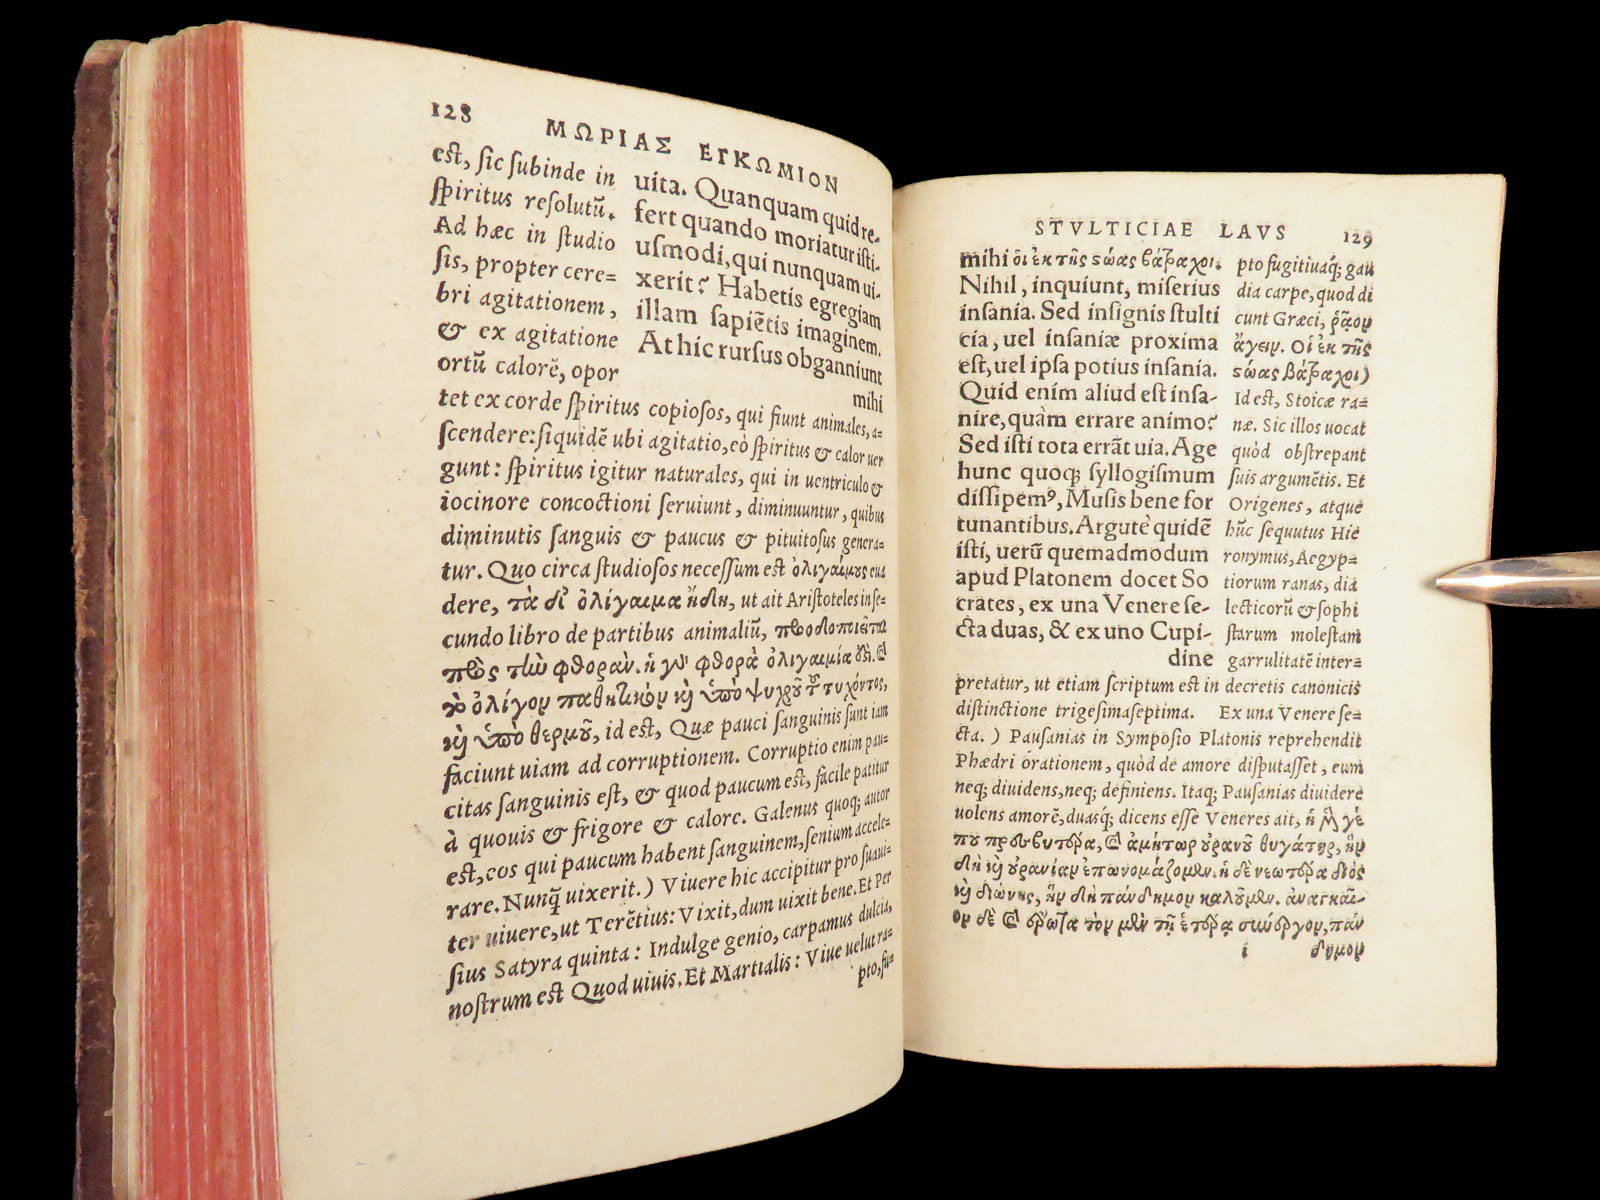 128
ΜΩΡΙΑΣ ΕΓΚΩΜΙΟΝ
est, sic subinde in
spiritus resolutũ.
Ad hæc in studio
sis, propter cere=
bri agitationem,
& ex agitatione
ortũ calorẽ, opor
uita. Quanquam quid re-
fert quando moriatur isti-
usmodi, qui nunquam ui-
xerit? Habetis egregiam
illam sapiẽtis imaginem.
At hic rursus obganniunt
mihi
tet ex corde spiritus copiosos, qui fiunt animales, a=
scendere: siquidẽ ubi agitatio, eò spiritus & calor uer
gunt: spiritus igitur naturales, qui in uentriculo &
iocinore concoctioni seruiunt, diminuuntur, quibus
diminutis sanguis & paucus & pituitosus genera=
tur. Quo circa studiosos necessum est ὀλιγαίμους eua
dere, τὰ δ' ὀλίγαιμα ἤδη, ut ait Aristoteles in se=
cundo libro de partibus animaliũ, πρωοδοποιεῖται
πρὸς τὴν φθοράν. ἡ γὰρ φθορὰ ὀλιγαιμία ὅδὶ. καὶ
τὸ ὀλίγον παθητικὸν καὶ ὑπὸ ψυχροῦ τοῦ τυχόντος,
καὶ ὑπὸ θερμοῦ, id est, Quæ pauci sanguinis sunt iam
faciunt uiam ad corruptionem. Corruptio enim pau=
citas sanguinis est, & quod paucum est, facile patitur
à quouis & frigore & calore. Galenus quoq; autor
est, eos qui paucum habent sanguinem, senium accele=
rare. Nunq̃ uixerit.) Viuere hic accipitur pro suaui=
ter uiuere, ut Terẽtius: Vixit, dum uixit bene. Et Per
sius Satyra quinta: Indulge genio, carpamus dulcia,
nostrum est Quod uiuis. Et Martialis: Viue uelut ra=
pto, fu=
STVLTICIAE LAVS
129
mihi οἱ ἐκ τῆς ϛώας βάτραχοι.
Nihil, inquiunt, miserius
insania. Sed insignis stulti
cia, uel insaniæ proxima
est, uel ipsa potius insania.
Quid enim aliud est insa-
nire, quàm errare animo?
Sed isti tota errãt uia. Age
hunc quoq; syllogismum
dissipemꝰ, Musis bene for
tunantibus. Argutè quidẽ
isti, uerũ quemadmodum
apud Platonem docet So
crates, ex una Venere se-
cta duas, & ex uno Cupi-
dine
pto fugitiuaq́; gau
dia carpe, quod di
cunt Græci, ῥᾷον
ἄγειν. Οἱ ἐκ τῆς
ϛώας βάτραχοι)
Id est, Stoicæ ra=
næ. Sic illos uocat
quòd obstrepant
suis argumẽtis. Et
Origenes, atque
hũc sequutus Hie
ronymus, Aegyp=
tiorum ranas, dia
lecticorũ & sophi
starum molestam
garrulitatẽ inter=
pretatur, ut etiam scriptum est in decretis canonicis
distinctione trigesimaseptima. Ex una Venere se=
cta.) Pausanias in Symposio Platonis reprehendit
Phædri orationem, quòd de amore disputasset, eum
neq; diuidens, neq; definiens. Itaq; Pausanias diuidere
uolens amorẽ, duasq́; dicens esse Veneres ait, ἡ μὲν γέ
που πρεσβυτέρα, καὶ ἀμήτωρ οὐρανοῦ θυγάτηρ, ἣν
δὴ καὶ οὐρανίαν ἐπονομάζομεν. ἡ δὲ νεωτέρα διὸς
καὶ διώνης, ἣν δὴ πάνδημον καλοῦμεν. ἀναγκαῖ-
ον δὲ καὶ ἔρωτα τὸν μὲν τῇ ἑτέρᾳ συνεργὸν, πάν
i
δημον